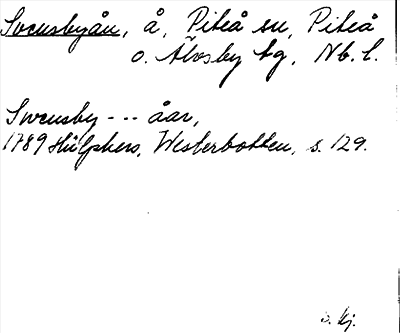 Svensbyån, å, Piteå sn, Piteå
o. Älvsby tg, Nb. l.
Svensby --- åar,
1789 Hülphers, Westerbotten, s. 129.